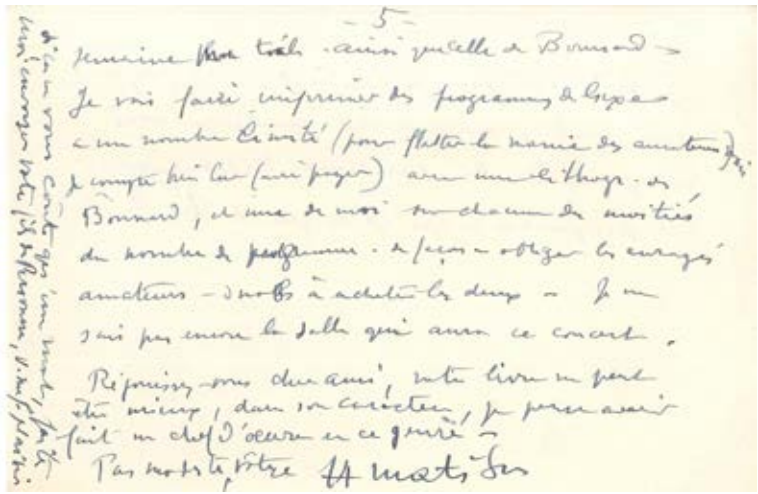 - 5 -
semaine plus tôt - ainsi que celle de Bonnard -
Je vais faire imprimer des programmes de luxe
à un nombre limité (pour flatter la manie des amateurs) que
je compte bien (faire payer) avec une lithogr. de
Bonnard, et une de moi sur chacun des moitiés
du nombre de programme - de façon à obliger les enragés
amateurs - snobs à acheter les deux - Je ne
sais pas encore la salle qui aura ce concert.
Réjouissez-vous cher ami, votre livre ne peut
être mieux, dans son caractère, je pense avoir
fait un chef d'oeuvre en ce genre -
Pas modeste, vôtre H Matisse
vous coûte qu'un mot,
moi envoyer votre